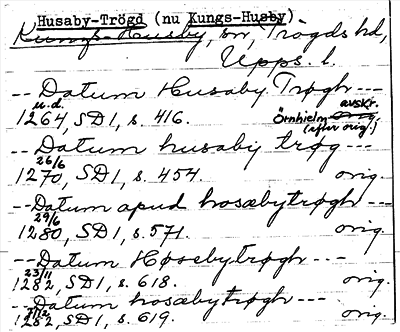 Husaby-Trögd (nu Kungs-Husby)
Kungs-Husby, sn, Trögds hd,
Upps. l.
-- Datum Husaby Trøgh ---
u.d. avskr.
1264, SD1, s. 416. Örnhielm orig.
(efter orig.)
-- Datum husaby trøg ---
26/6
1270, SD1, s. 454. orig.
-- Datum apud hosæbytrøgh ---
29/6
1280, SD1, s. 571. orig.
-- Datum Høsebytrøgh ---
23/11
1282, SD1, s. 618. orig.
-- Datum hosæbytrøgh ---
1282, SD1, s. 619. orig.